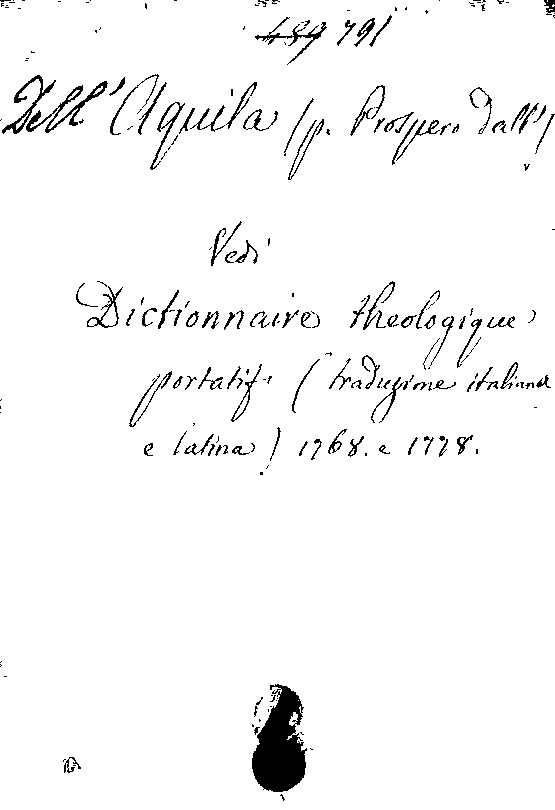 489 791
Dell' Aquila (p. Prospero dall')
Vedi
Dictionnaire theologique
portatif. (traduzione italiana
e latina) 1768. e 1778.